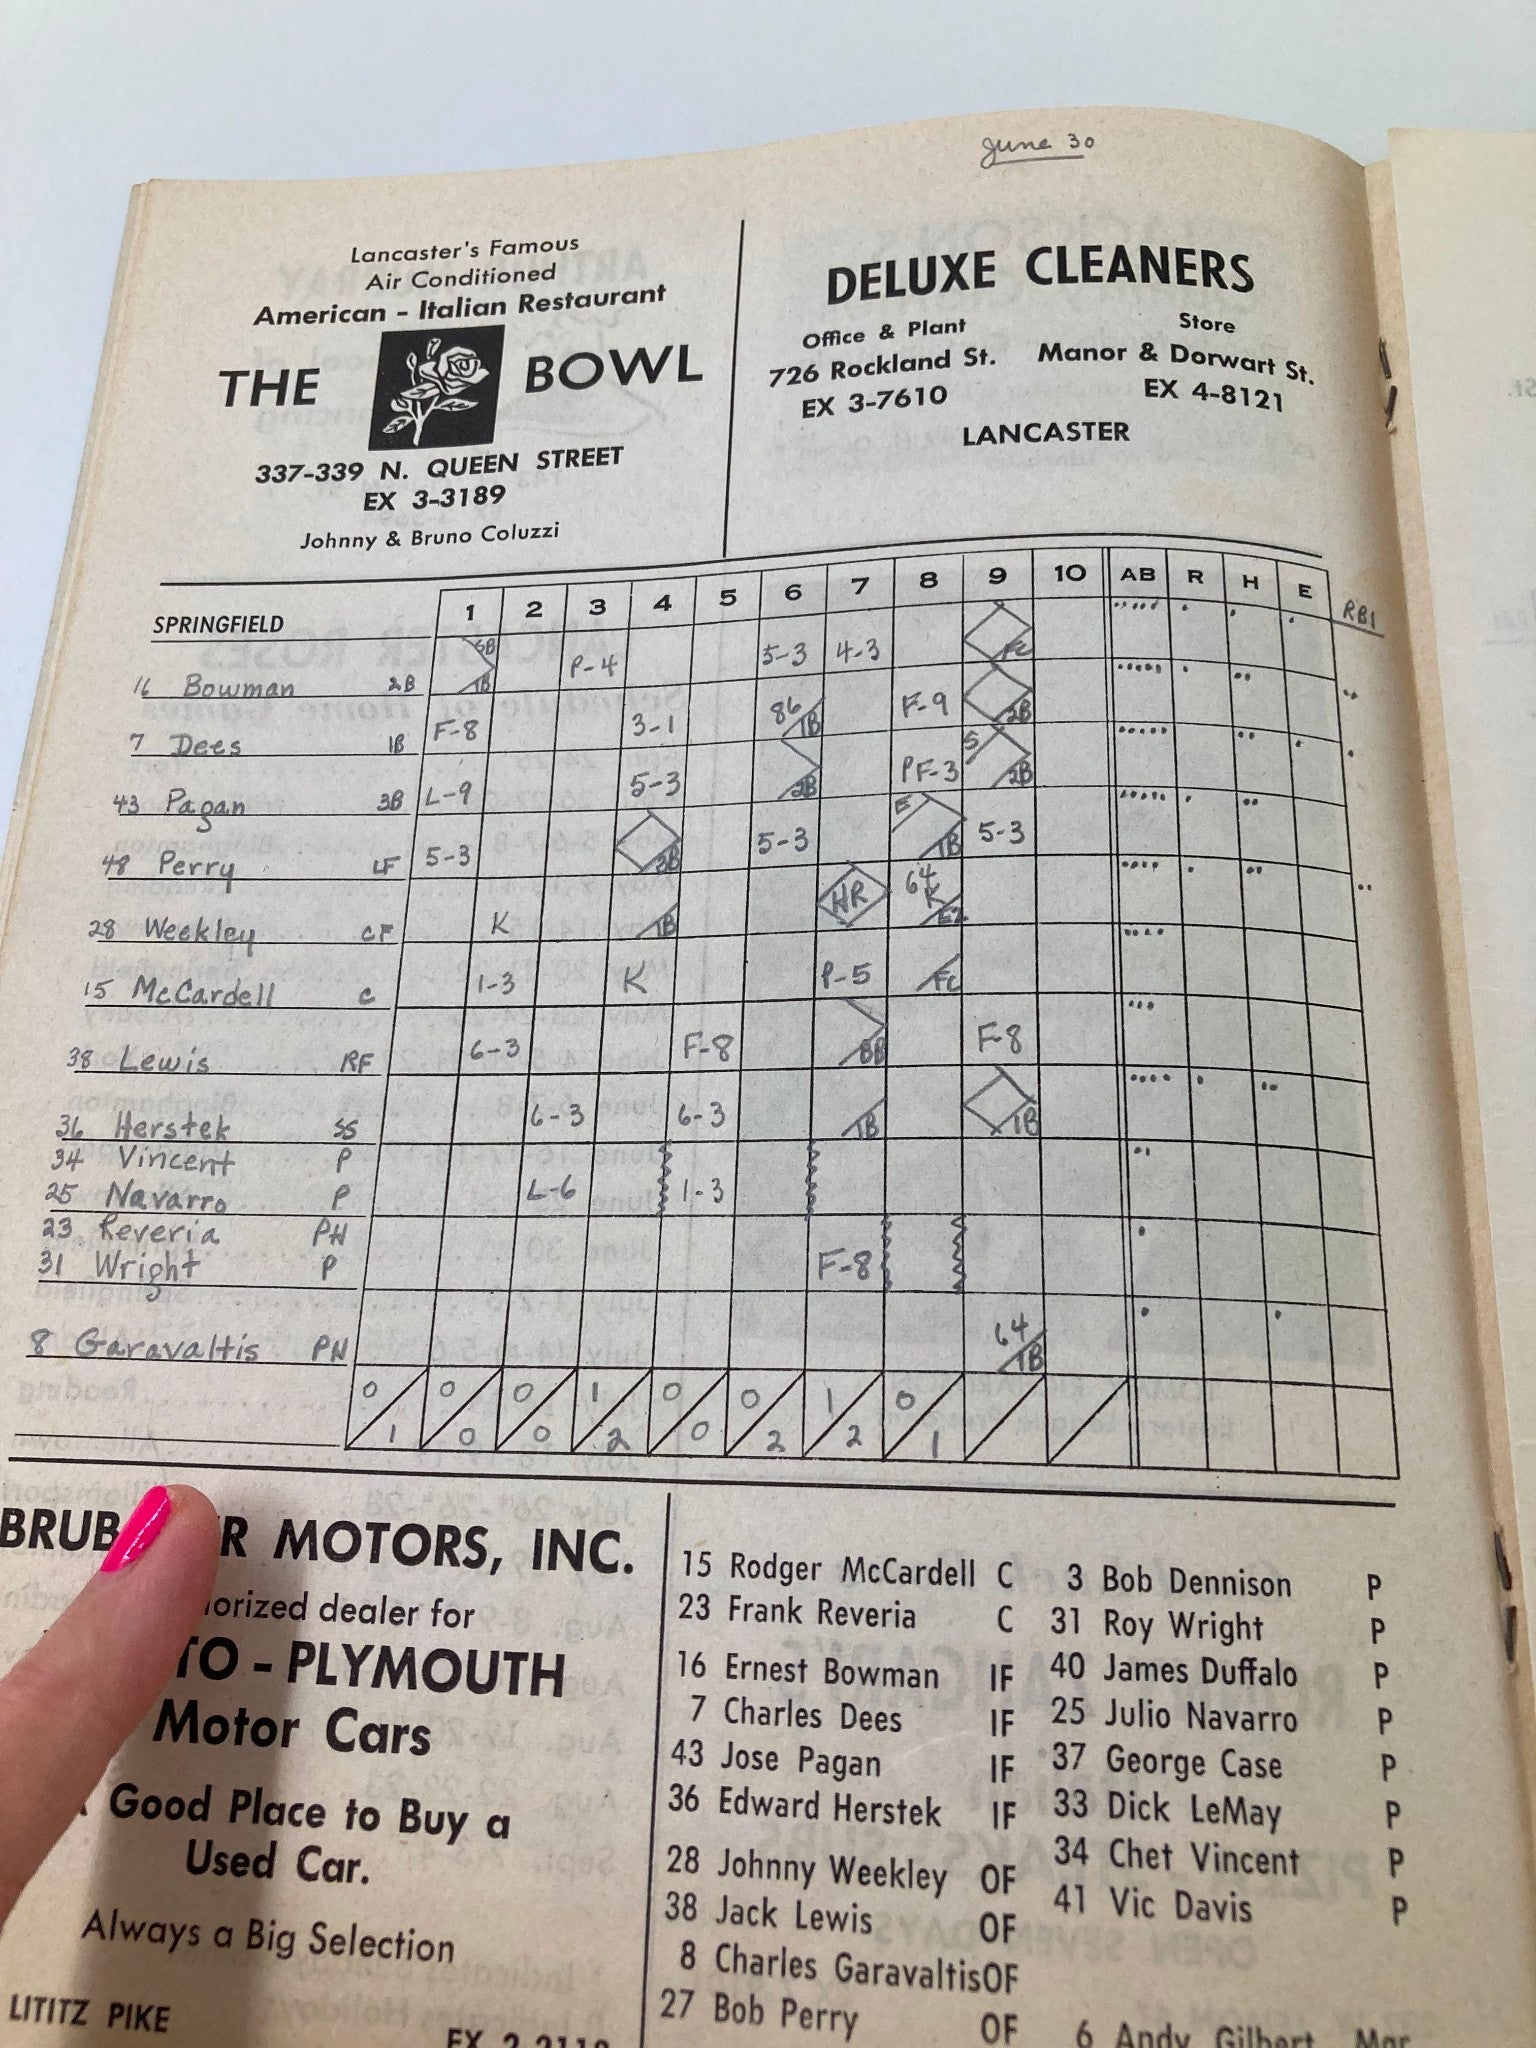 June 30
Lancaster's Famous
Air Conditioned
American - Italian Restaurant
THE BOWL
337-339 N. QUEEN STREET
EX 3-3189
Johnny & Bruno Coluzzi
DELUXE CLEANERS
Office & Plant
726 Rockland St.
EX 3-7610
Store
Manor & Dorwart St.
EX 4-8121
LANCASTER
SPRINGFIELD 1 2 3 4 5 6 7 8 9 10 AB R H E RBI
16 Bowman 2B SB 1B P-4 5-3 4-3 FC
7 Dees 1B F-8 3-1 86 1B F-9 2B
43 Pagan 3B L-9 5-3 2B PF-3 5 2B
48 Perry LF 5-3 3B 5-3 E 1B 5-3
28 Weekley CF K 1B HR 64 K E2
15 McCardell C 1-3 K P-5 FC
38 Lewis RF 6-3 F-8 BB F-8
36 Herstek SS 6-3 6-3 1B 1B
34 Vincent P
25 Navarro P L-6 1-3
23 Reveria PH
31 Wright P F-8
8 Garavaltis PH 64 1B
0/1 0/0 0/0 1/2 0/0 0/2 1/2 0/1
MOTORS, INC.
dealer for
- PLYMOUTH
Motor Cars
Good Place to Buy a
Used Car.
Always a Big Selection
LITITZ PIKE
15 Rodger McCardell C
23 Frank Reveria C
16 Ernest Bowman IF
7 Charles Dees IF
43 Jose Pagan IF
36 Edward Herstek IF
28 Johnny Weekley OF
38 Jack Lewis OF
8 Charles Garavaltis OF
27 Bob Perry OF
3 Bob Dennison P
31 Roy Wright P
40 James Duffalo P
25 Julio Navarro P
37 George Case P
33 Dick LeMay P
34 Chet Vincent P
41 Vic Davis P
6 Andy Gilbert Mgr